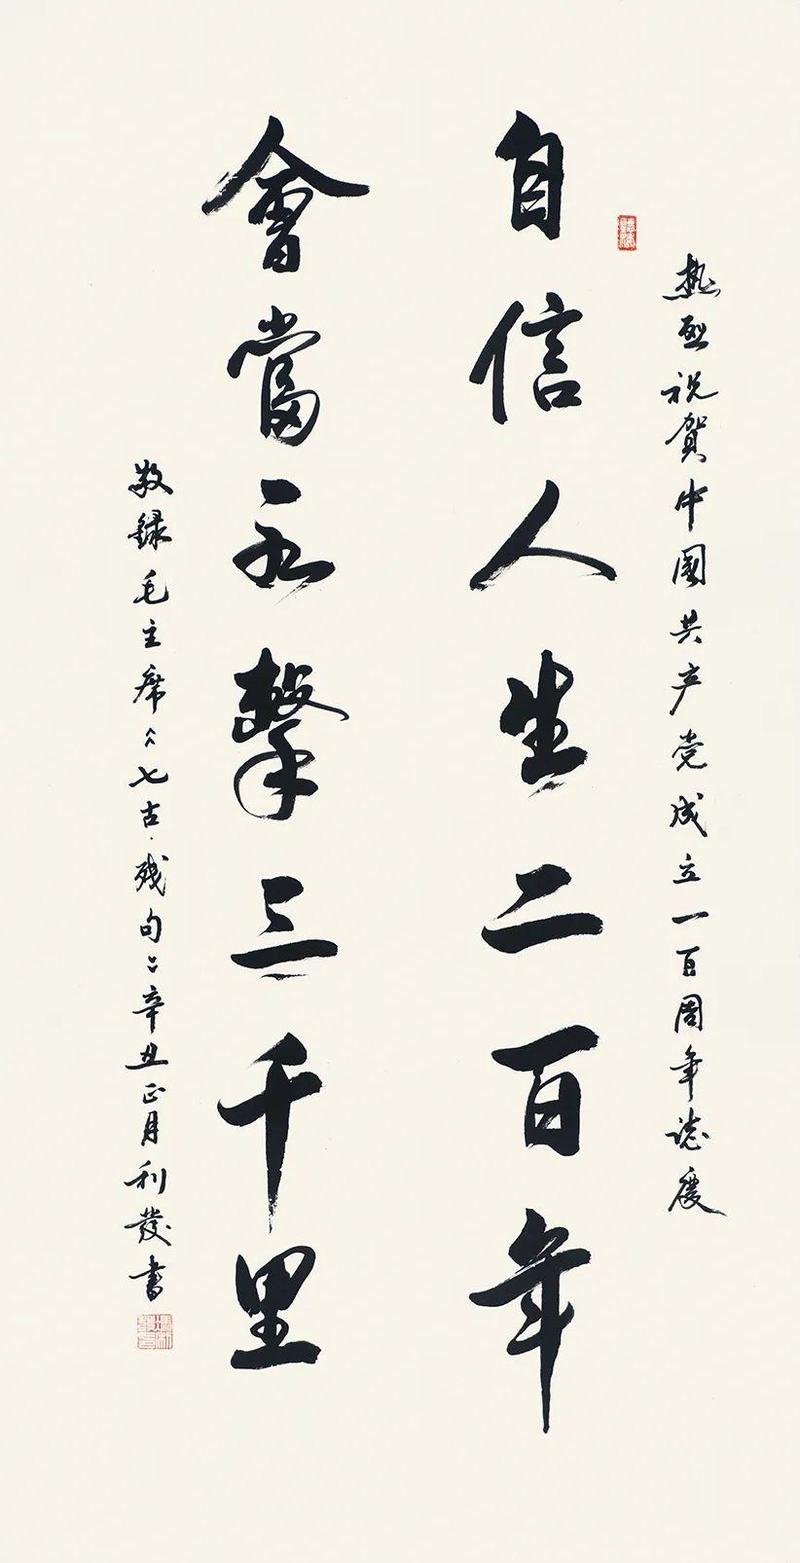 热烈祝賀中國共产党成立一百周年誌慶
自信人生二百年
會當水擊三千里
敬録毛主席《七古·残句》辛丑正月利發書